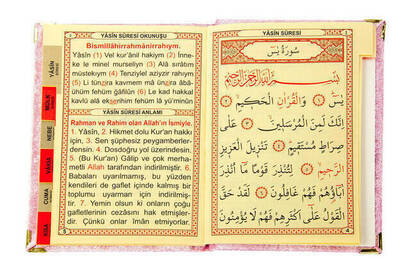 YÂSÎN SÛRESİ OKUNUŞU
Bismillâhirrahmânirrahıym.
Yâsîn (1) Vel kur'ânil hakiym (2) İnne-
ke le minel murseliyn (3) Alâ sırâtım
müstekıym (4) Tenziylel aziyzir rahıym
(5) Li tünzira kavmem mâ ünzira âbâ-
ühüm fehüm gâfilûn (6) Le kad hakkal
kavlü alâ ekserihim fehüm lâ yü'minûn
YÂSÎN SÛRESİ ANLAMI
Rahman ve Rahim olan Allah'ın İsmiyle.
1. Yâsin, 2. Hikmet dolu Kur'an hakkı
için, 3. Sen şüphesiz peygamberler-
densin. 4. Dosdoğru yol üzerindesin.
5. (Bu Kur'an) Gâlip ve çok merha-
metli Allah tarafından indirilmiştir. 6.
Babaları uyarılmamış, bu yüzden
kendileri de gaflet içinde kalmış bir
toplumu uyarman için indirilmiş-
tir. 7. Yemin olsun ki onların çoğu
gafletlerinin cezasını hak etmişler-
dir. Çünkü onlar îman etmiyorlar.
YÂSÎN
MÜLK
NEBE
VAKIA
CUMA
KISA
YÂSÎN SÛRESİ
سُورَةُ يٰسٓ
بِسْمِ اللّٰهِ الرَّحْمٰنِ الرَّحِيمِ
يٰسٓ ﴿١﴾ وَالْقُرْاٰنِ الْحَكِيمِ ﴿٢﴾
اِنَّكَ لَمِنَ الْمُرْسَلِينَ ﴿٣﴾ عَلٰى
صِرَاطٍ مُسْتَقِيمٍ ﴿٤﴾ تَنْزِيلَ الْعَزِيزِ
الرَّحِيمِ ﴿٥﴾ لِتُنْذِرَ قَوْمًا مَٓا اُنْذِرَ
اٰبَٓاؤُهُمْ فَهُمْ غَافِلُونَ ﴿٦﴾ لَقَدْ حَقَّ
الْقَوْلُ عَلٰٓى اَكْثَرِهِمْ فَهُمْ لَا يُؤْمِنُونَ